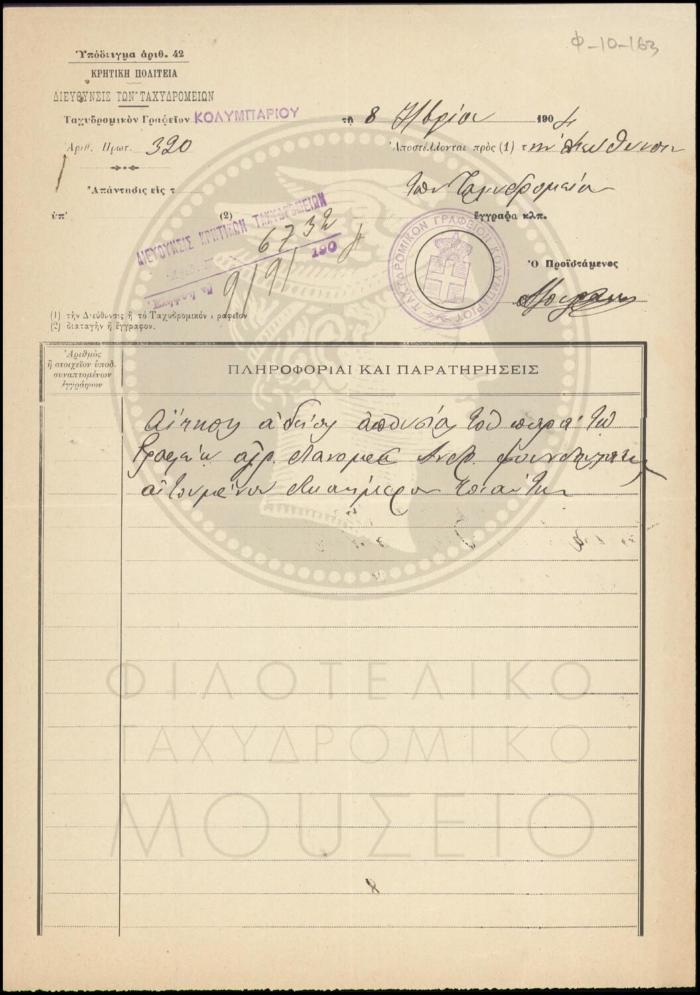 Φ-10-163
Ὑπόδειγμα ἀριθ. 42
ΚΡΗΤΙΚΗ ΠΟΛΙΤΕΙΑ
ΔΙΕΥΘΥΝΣΙΣ ΤΩΝ ΤΑΧΥΔΡΟΜΕΙΩΝ
Ταχυδρομικὸν Γραφεῖον ΚΟΛΥΜΠΑΡΙΟΥ
τῇ 8 1904
Ἀριθ. Πρωτ. 320
Ἀποστέλλονται πρὸς (1) τὴν Διεύθυνσιν
Ἀπάντησις εἰς τ
τῶν Ταχυδρομείων
ὑπ' (2)
ἔγγραφα κλπ.
ΔΙΕΥΘΥΝΣΙΣ ΚΡΗΤΙΚΩΝ ΤΑΧΥΔΡΟΜΕΙΩΝ
6732
9/9/ 190
ΤΑΧΥΔΡΟΜΙΚΟΝ ΓΡΑΦΕΙΟΝ ΚΟΛΥΜΠΑΡΙΟΥ
Ὁ Προϊστάμενος
(1) τὴν Διεύθυνσιν ἢ τὸ Ταχυδρομικὸν Γραφεῖον
(2) διαταγὴν ἢ ἔγγραφον.
Ἀριθμὸς
ἢ στοιχεῖον ὑποδ.
συναπτομένων
ἐγγράφων
ΠΛΗΡΟΦΟΡΙΑΙ ΚΑΙ ΠΑΡΑΤΗΡΗΣΕΙΣ
Αἴτησις ἀδείας ἀπουσίας τοῦ παρὰ τῷ
αἰτουμένου δεκαήμερον τοιαύτην
ΦΙΛΟΤΕΛΙΚΟ
ΤΑΧΥΔΡΟΜΙΚΟ
ΜΟΥΣΕΙΟ